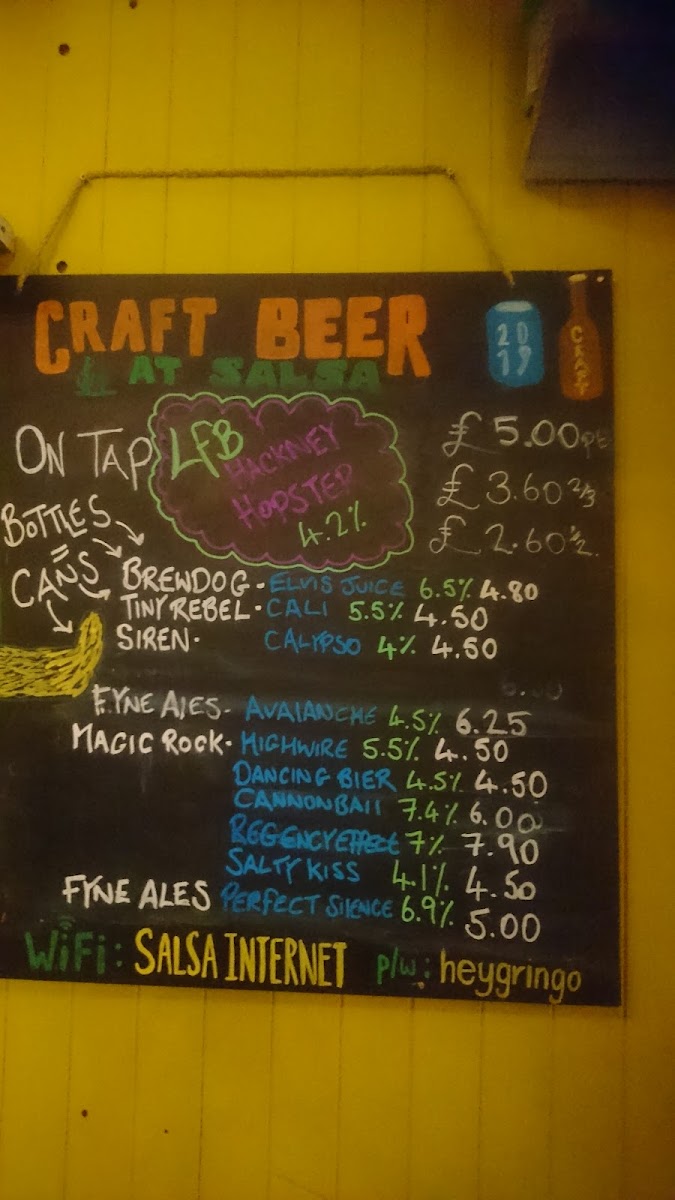 CRAFT BEER
AT SALSA
20
19
CRAFT
ON TAP
LFB
HACKNEY
HOPSTER
4.2%
£ 5.00
£ 3.60 2/3
£ 2.60 1/2
BOTTLES
=
CANS
BREWDOG - ELVIS JUICE 6.5% 4.80
TINY REBEL - CALI 5.5% 4.50
SIREN - CALYPSO 4% 4.50
FYNE ALES - AVALANCHE 4.5% 6.25
MAGIC ROCK - HIGHWIRE 5.5% 4.50
DANCING BIER 4.5% 4.50
CANNONBALL 7.4% 6.00
REGENCY EFFECT 7% 7.90
SALTY KISS 4.1% 4.50
FYNE ALES PERFECT SILENCE 6.9% 5.00
WiFi: SALSA INTERNET p/w: heygringo